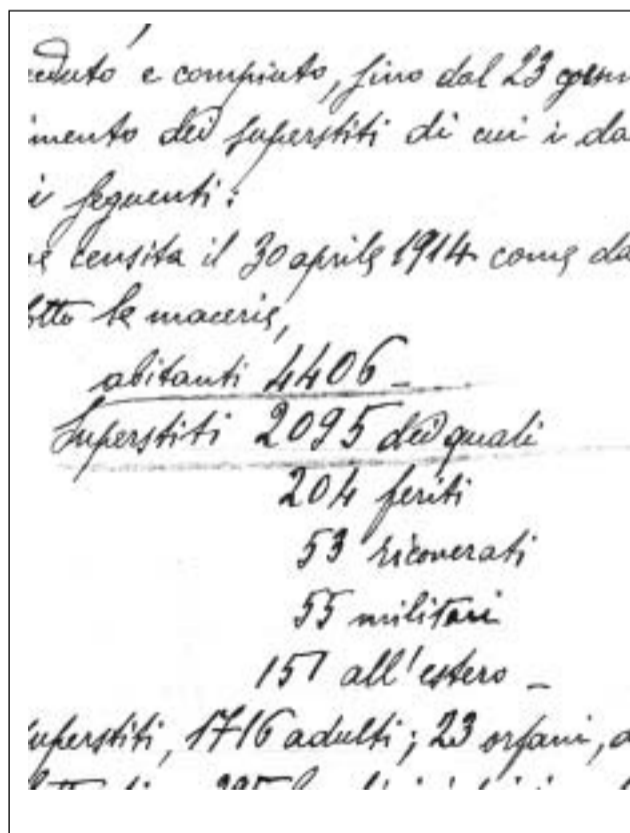 eduto e compiuto, fino dal 23 genn
imento dei superstiti di cui i da
i seguenti:
ne censita il 30 aprile 1914 come da
otto le macerie,
abitanti 4406 -
Superstiti 2095 dei quali
204 feriti
53 ricoverati
55 militari
151 all'estero -
superstiti, 1716 adulti; 23 orfani, d